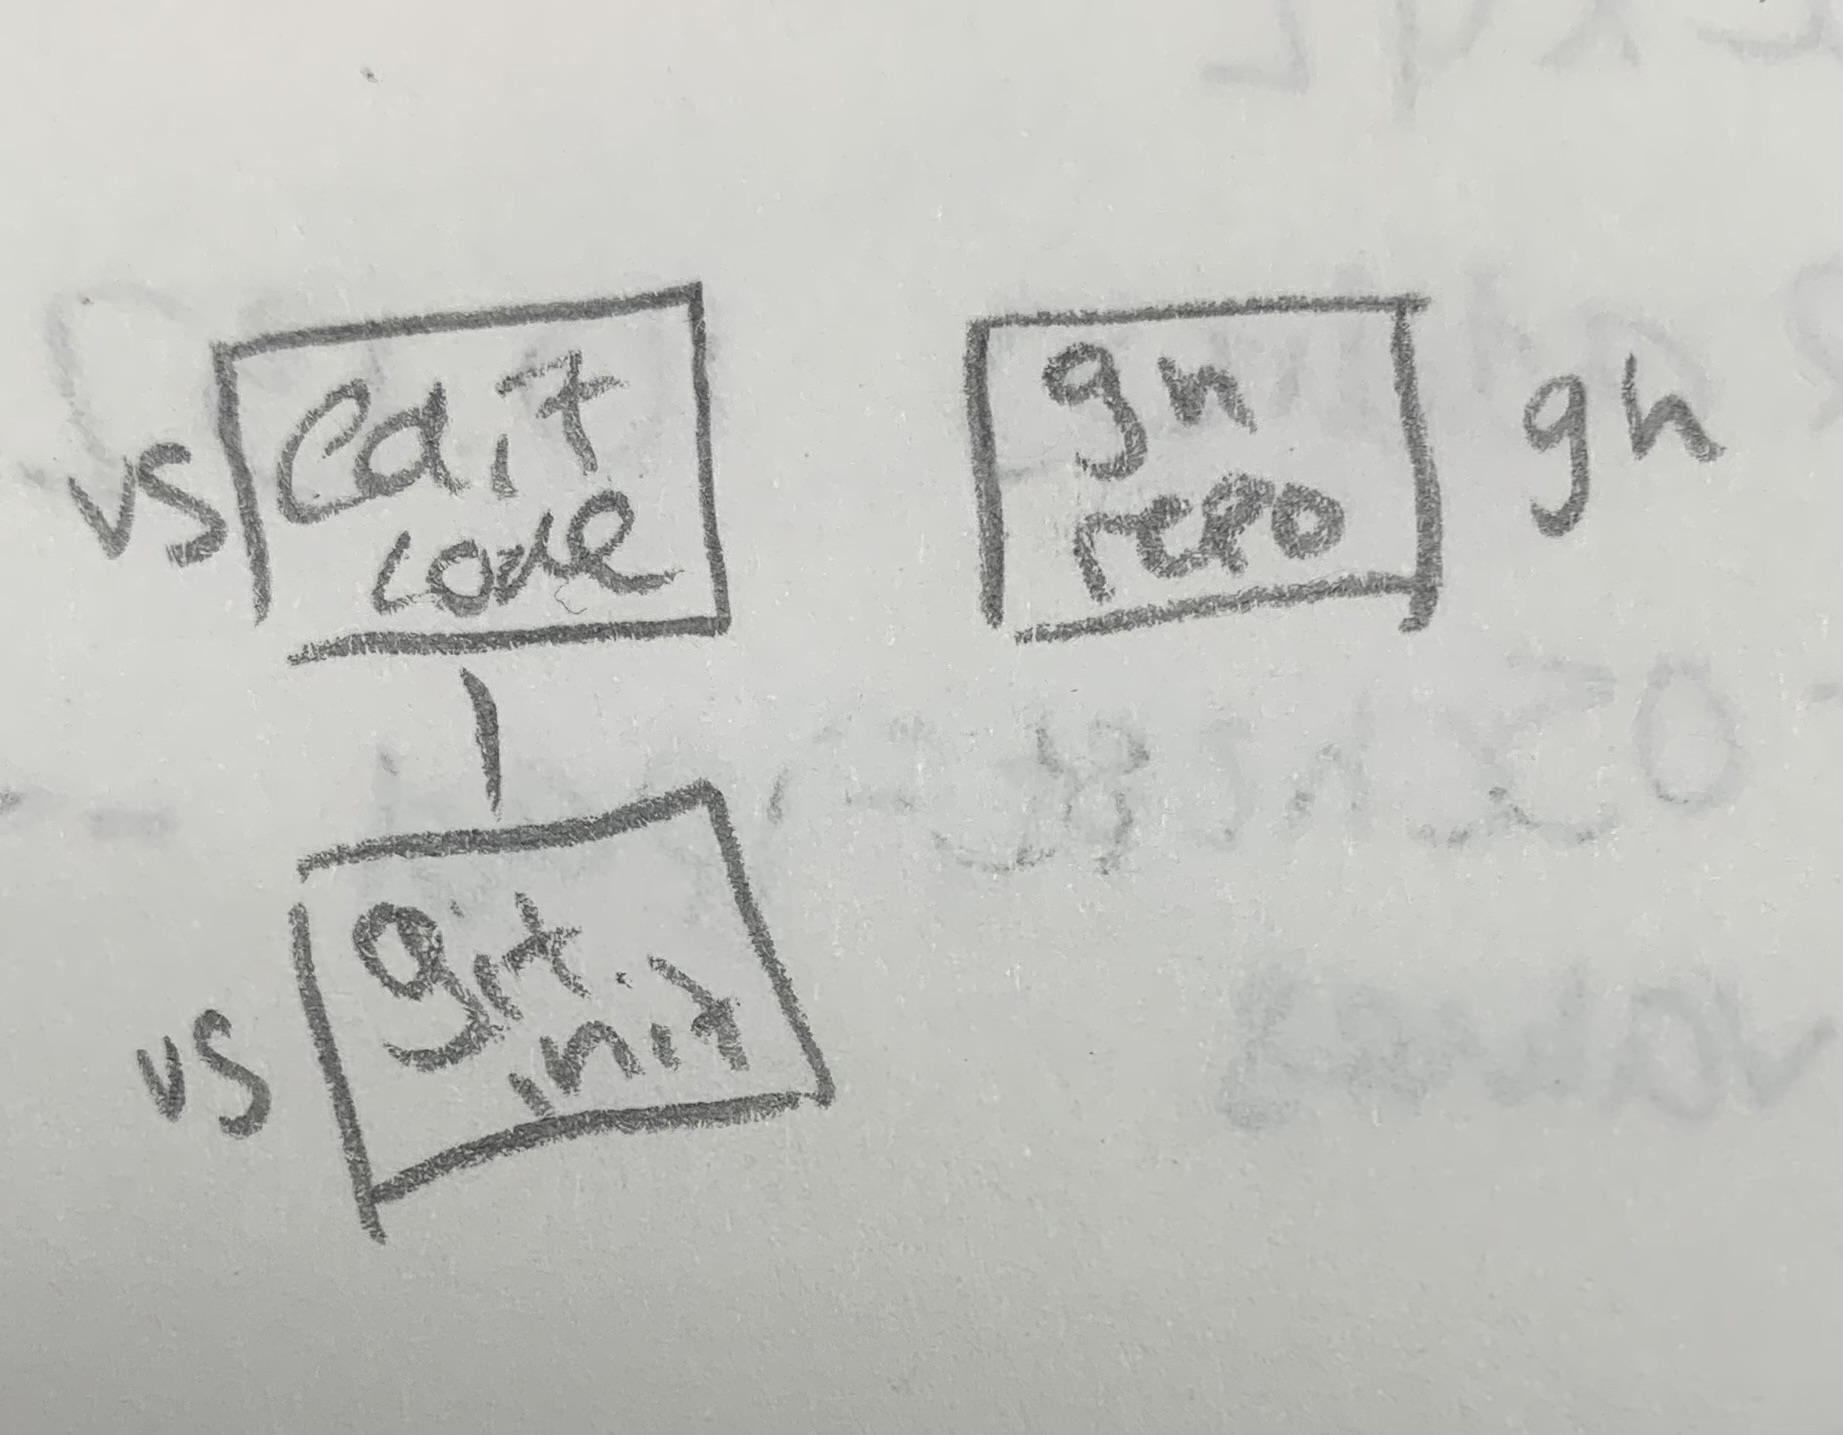 vs
Edit
code
gh
repo
gh
vs
git
init